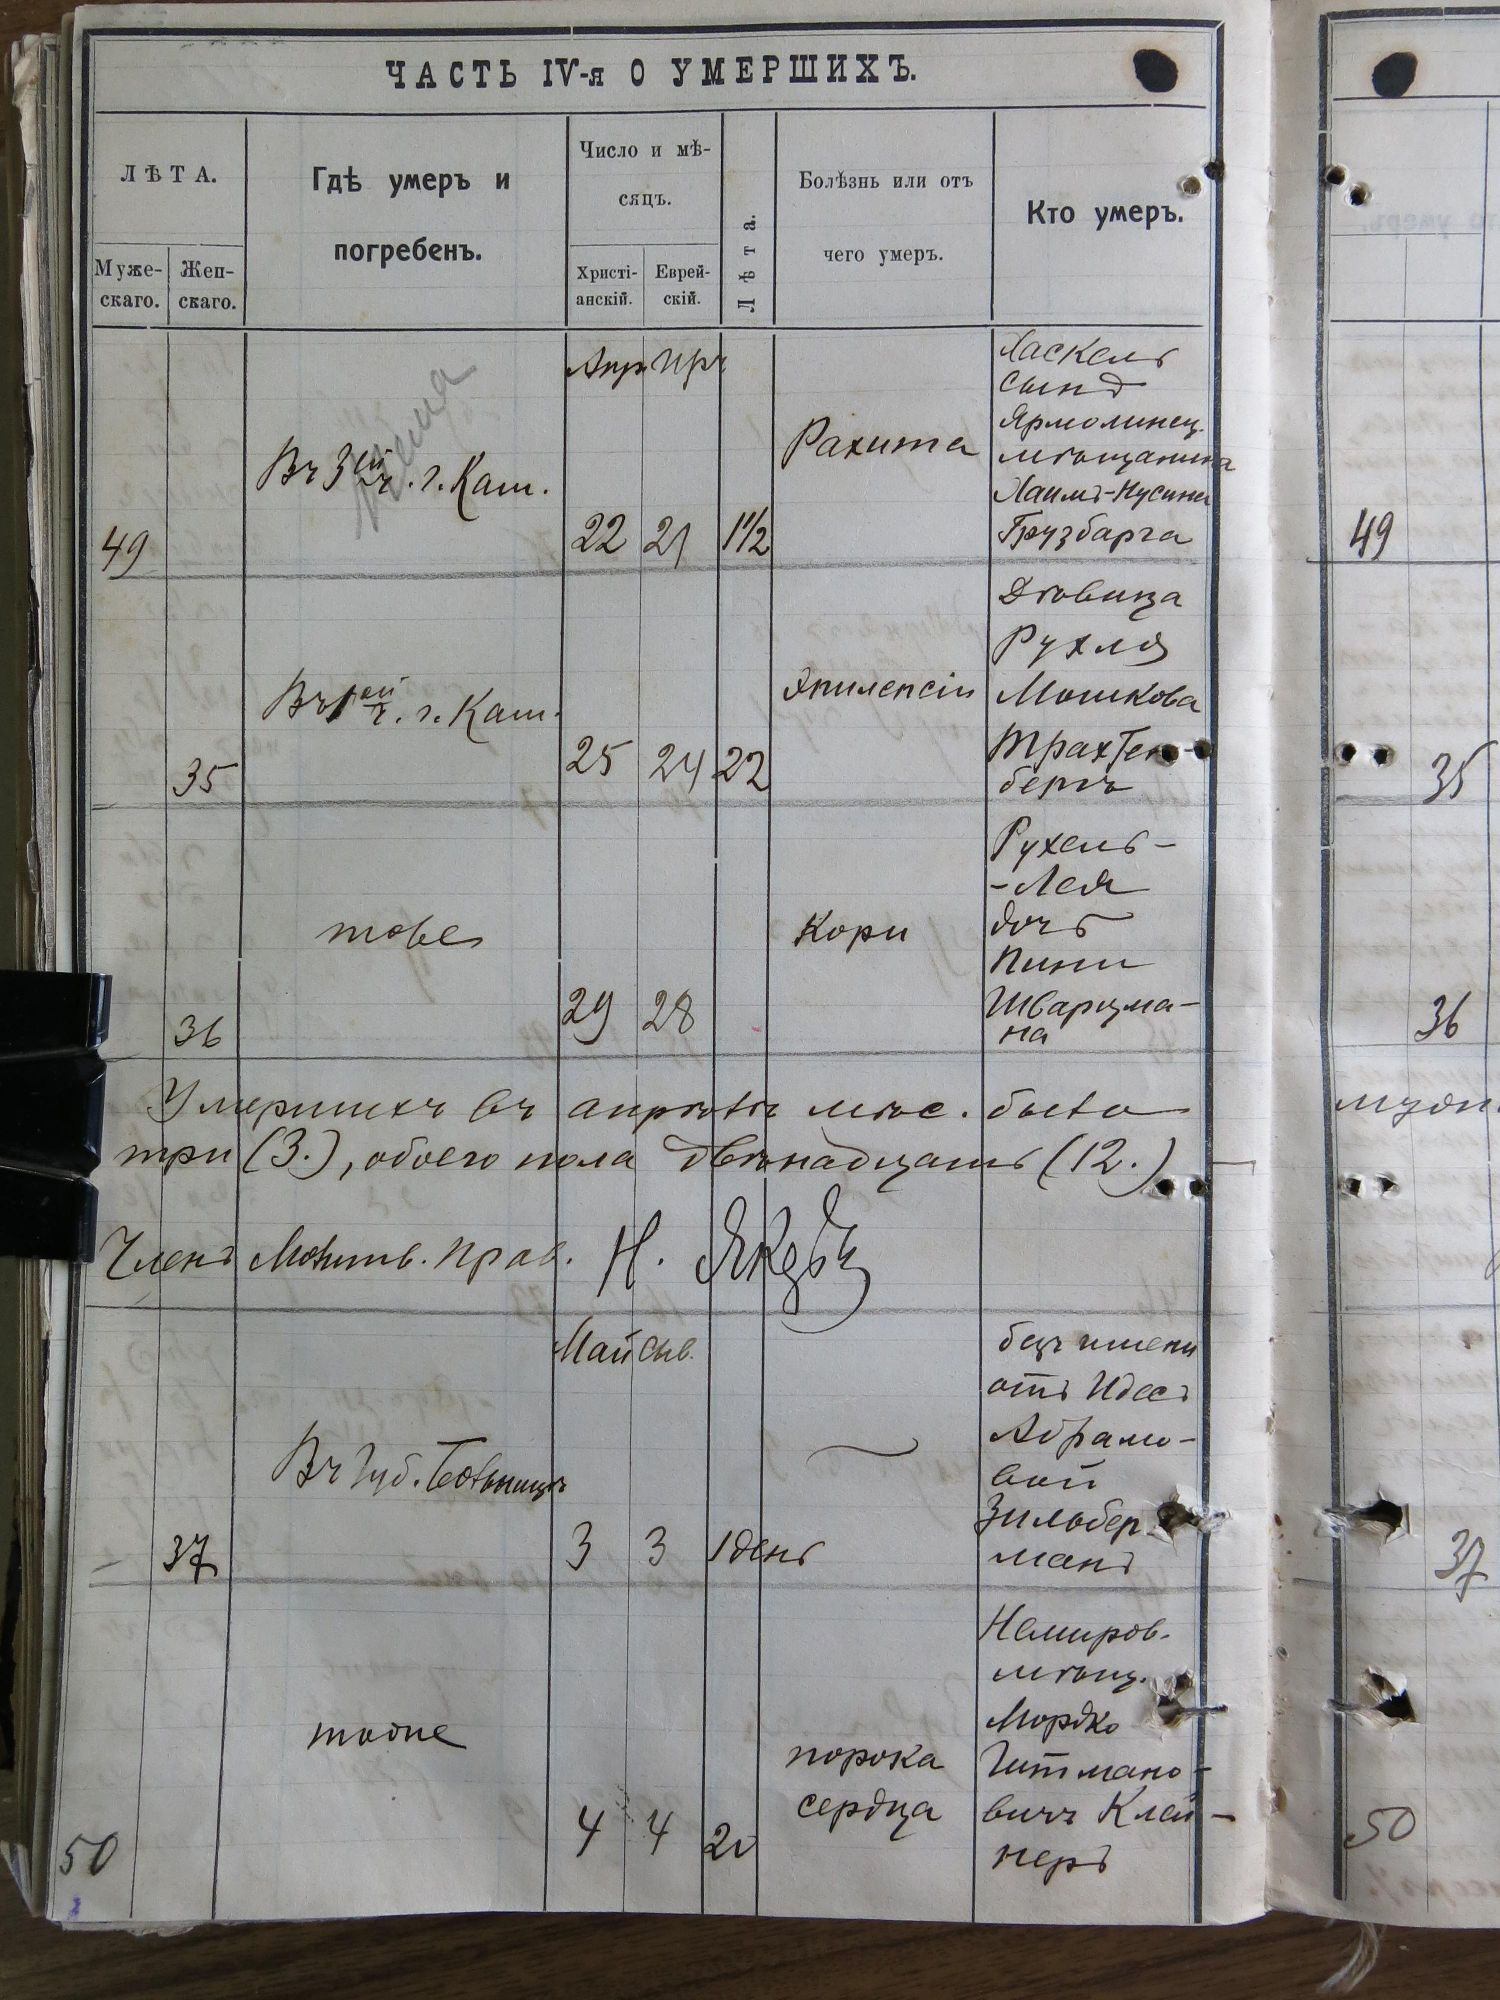 ЧАСТЬ IV-я О УМЕРШИХЪ.
ЛѢТА.
Муже-
скаго.
Жен-
скаго.
Гдѣ умеръ и
погребенъ.
Число и мѣ-
сяцъ.
Христі-
анскій.
Еврей-
скій.
Лѣта.
Болѣзнь или отъ
чего умеръ.
Кто умеръ.
49
Въ 3ей ч. г. Каш.
Апр.
22
21
1 1/2
Рахита
Хаскель
сынъ
Ярмолинец.
мѣщанина
Хаимъ-Нусина
Грузбарга
49
35
Въ 1ой ч. г. Каш.
25
24
22
Эпилепсіи
Дѣвица
Рухля
Мошкова
Трахтен-
бергъ
35
36
тоже
29
28
Кори
Рухель-
-Лея
дочь
Пини
Шварцма-
на
36
Умершихъ въ апрѣлѣ мѣс. было
три (3.), обоего пола двѣнадцать (12.)
Членъ Молитв. Прав. Н.
37
Въ Губ. Больницѣ
Май
3
3
1 день
безъ имени
отъ Идесъ
Абрамо-
вой
Зильбер
манъ
37
50
тоже
4
4
20
порока
сердца
Немиров.
мѣщ.
Мордко
Гитмано-
вичъ Клей-
неръ
50